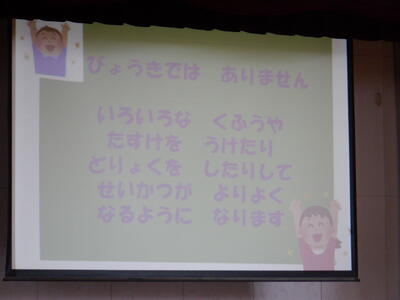 びょうきでは　ありません
いろいろな　くふうや
たすけを　うけたり
どりょくを　したりして
せいかつが　よりよく
なるように　なります